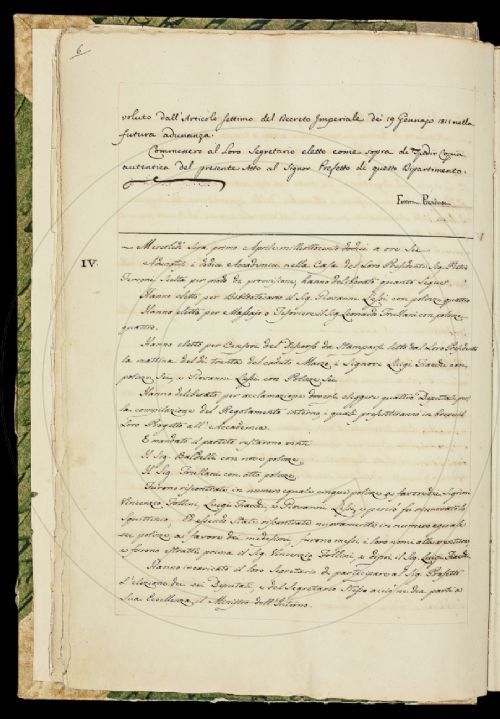 6.
voluto dall'Articolo settimo del Decreto Imperiale dei 19 Gennajo 1811 nella
futura adunanza.
Commessero al Loro Segretario eletto come sopra di Copia
autentica del presente Atto al Signor Prefetto di questo Dipartimento.
IV.
Mercoledì Sera primo Aprile milleottocento dodici a ore Sei
Adunatisi i dodici Accademici nella Casa del Loro Presidente Sig. Pietro
Ferroni Scelta per modo di provvisione, hanno deliberato quanto Segue.
Hanno eletto per Bibliotecario il Sig. Giovanni Lessi con polizze quattro
Hanno eletto per Massajo o Tesoriere il Sig. Leonardo Frullani con polizze
quattro.
Hanno eletto per Censori del Discorso da Stamparsi letto dal Loro Presidente
la mattina del dì trenta del caduto Marzo i Signori Luigi Fiacchi con
polizze Sei, e Giovanni Lessi con Polizze Sei.
Hanno deliberato per acclamazione doversi eleggere quattro Deputati per
la compilazione del Regolamento interno, i quali presenteranno in
Loro Progetto all'Accademia.
E mandato il partito restarono vinti
Il Sig. Baldelli con nove polizze
Il Sig. Frullani con otto polizze
Furono riscontrate in numero eguale cinque polizze a favore dei Sigiori
Vincenzio Follini, Luigi Fiacchi, e Giovanni Lessi, e perciò fu rinnovato lo
Squittinio, Essendo Stati riscontrate nuovamente in numero eguale
sei polizze a favore dei medesimi, furono messi i loro nomi
e furono estratti prima il Sig. Vincenzio Follini, e dopo il Sig. Luigi Fiacchi
Hanno incaricato il loro Segretario di partecipare al Sig. Prefetto
l'elezione dei sei Deputati, e del Segretario Stesso acciò ne dia parte a
Sua Eccellenza il Ministro dell'Interno.